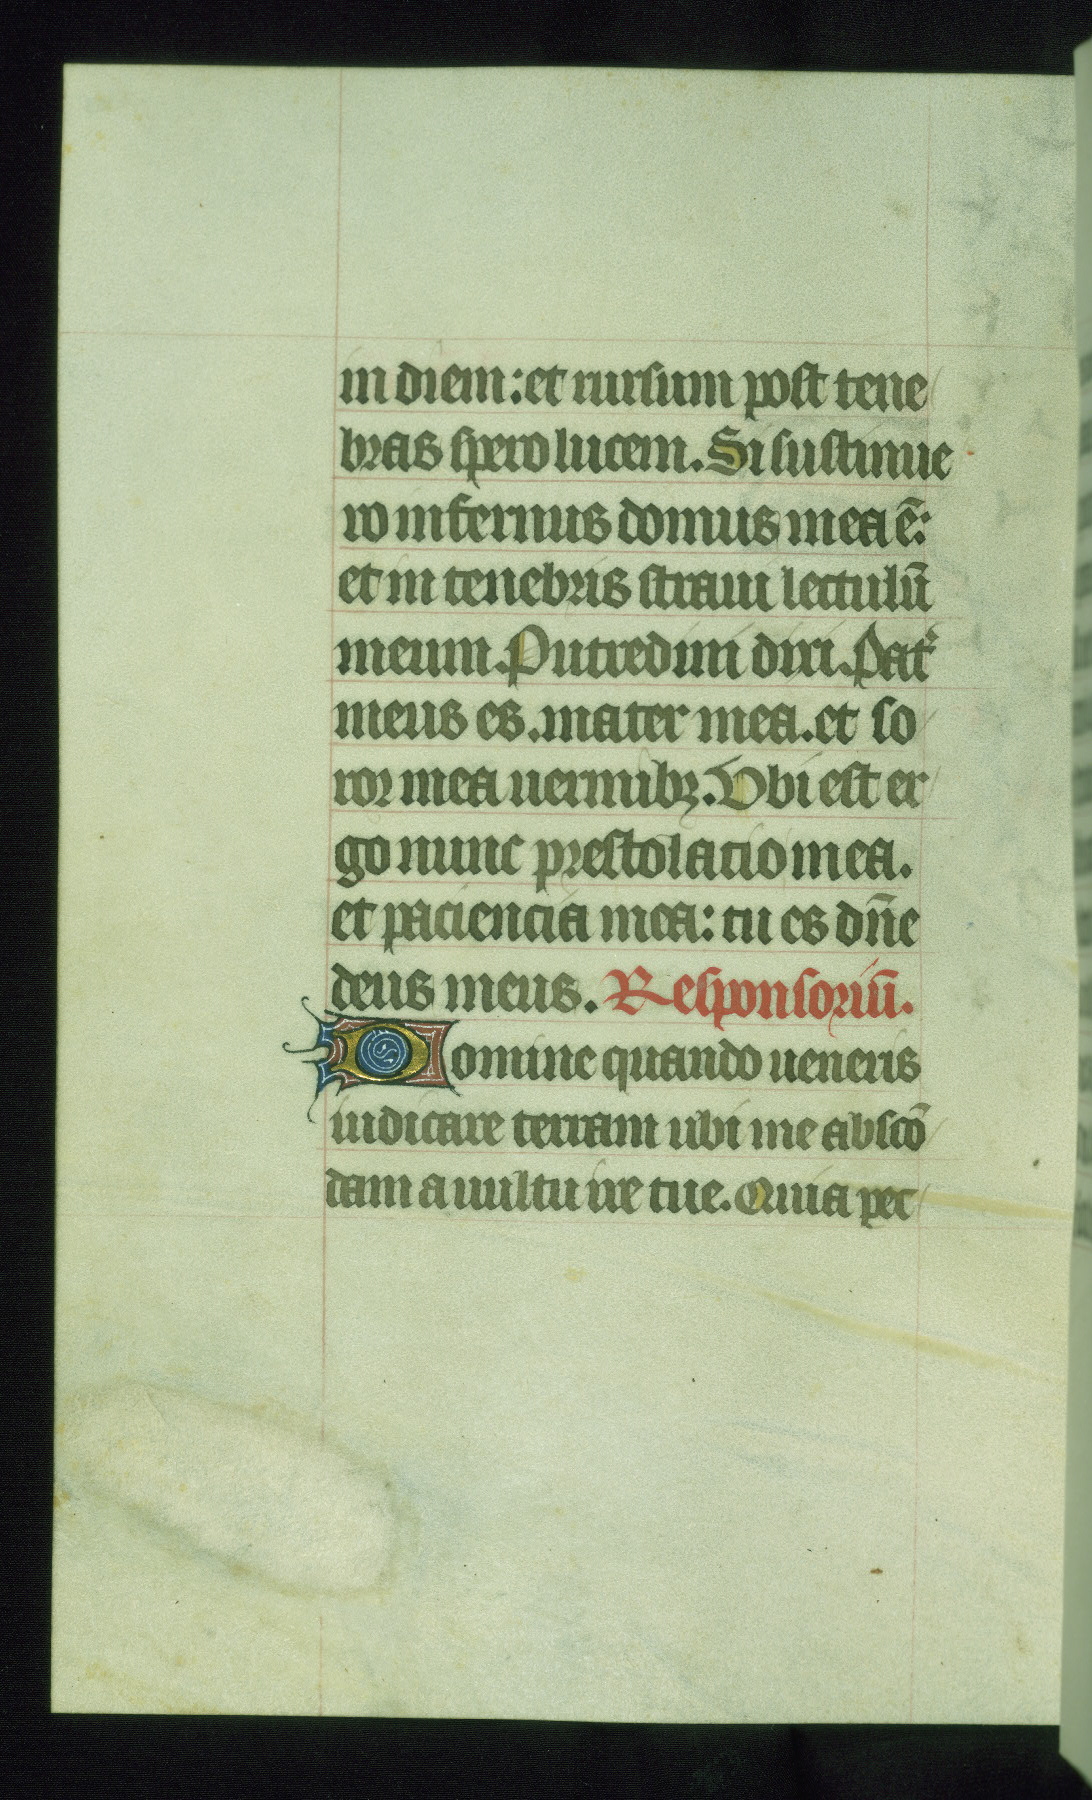 in diem: et rursum post tene
bras spero lucem. Si sustinue
ro infernus domus mea ē:
et in tenebris straui lectulū
meum. Putredini dixi. Pat̉
meus es. mater mea. et so
ror mea uermibꝫ. Vbi est er
go nunc prestolacio mea.
et paciencia mea: tu es dn̄e
deus meus. Responsoriū.
Domine quando ueneris
iudicare terram ubi me abscō
dam a uultu ire tue. Quia pec